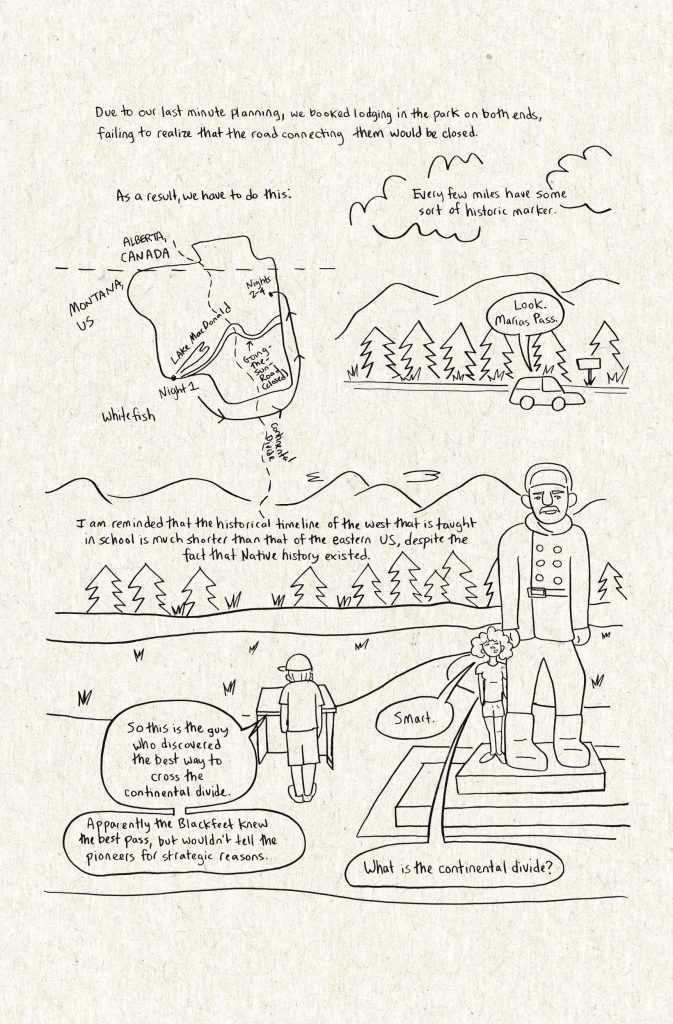 Due to our last minute planning, we booked lodging in the park on both ends,
failing to realize that the road connecting them would be closed.
As a result, we have to do this:
ALBERTA,
CANADA
MONTANA,
US
Nights
2-4
LAKE MacDonald
Going-
the-
Sun-
Road
(closed)
Night 1
Whitefish
Continental
Divide
Every few miles have some
sort of historic marker.
Look.
Marias Pass.
I am reminded that the historical timeline of the west that is taught
in school is much shorter than that of the eastern US, despite the
fact that Native history existed.
So this is the guy
who discovered
the best way to
cross the
continental divide.
Apparently the Blackfeet knew
the best pass, but wouldn't tell the
pioneers for strategic reasons.
Smart.
What is the continental divide?